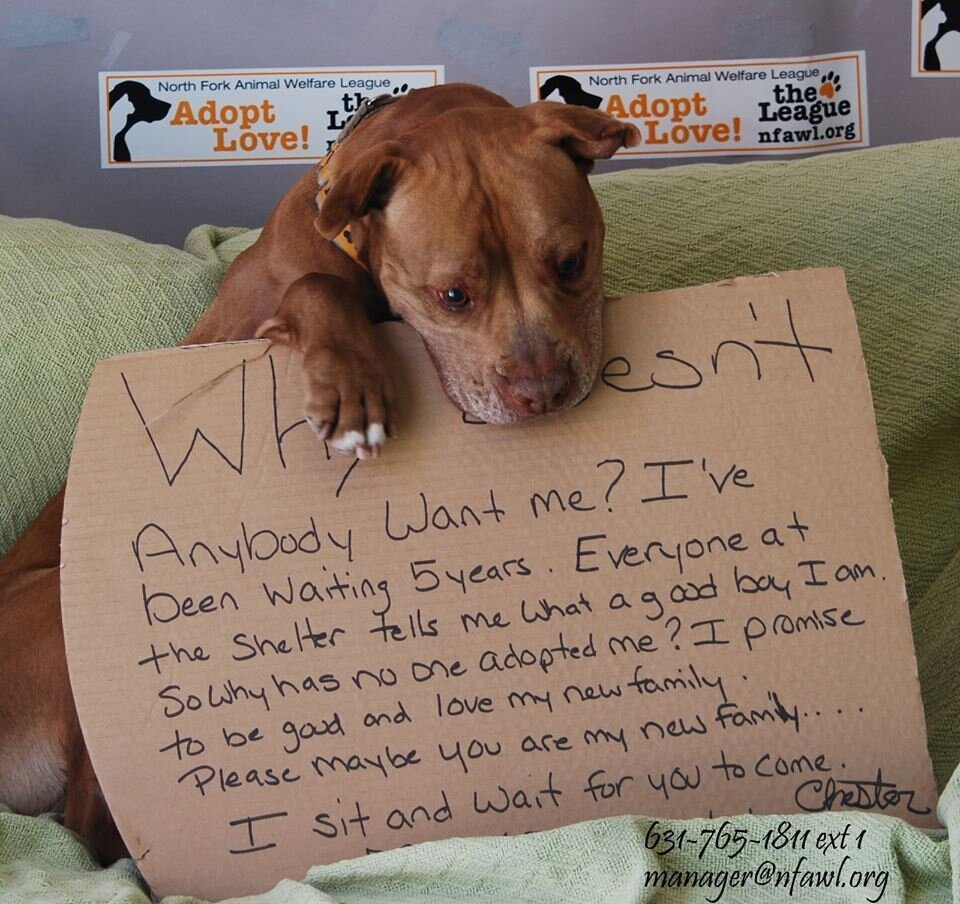 North Fork Animal Welfare League
Adopt
Love!
North Fork Animal Welfare League
Adopt
Love!
the
League
nfawl.org
esn't
Anybody Want me? I've
been waiting 5 years. Everyone at
the shelter tells me what a good boy I am.
So why has no one adopted me? I promise
to be good and love my new family.
Please maybe you are my new family....
I sit and wait for you to come.
Chester
631-765-1811 ext 1
manager@nfawl.org